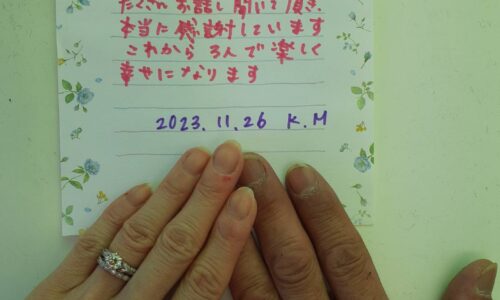 たくさんお話し聞いて頂き、
本当に感謝しています
これから 3人で楽しく
幸せになります
2023.11.26 K.M